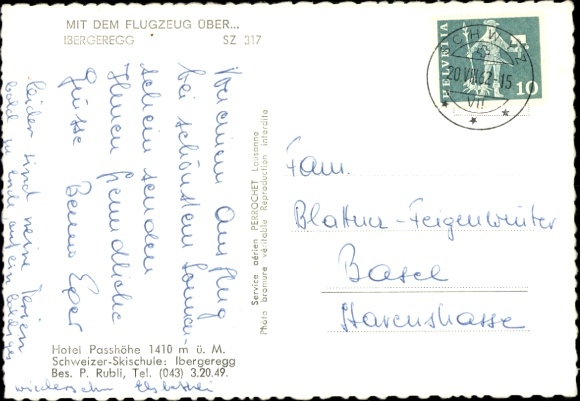 MIT DEM FLUGZEUG ÜBER...
IBERGEREGG SZ 317
Von einem Ausflug
bei schönstem Sonnen-
schein senden
Ihnen freundliche
Grüsse Benno
leider sind meine Ferien
bald zu ende, auf ein baldiges
wiedersehn
Service aérien PERROCHET Lausanne
Photo bromure véritable Reproduction interdite
Hotel Passhöhe 1410 m ü. M.
Schweizer-Skischule: Ibergeregg
Bes. P. Rubli, Tel. (043) 3.20.49.
HELVETIA
10
SCHWYZ
20.VII.62-15
Fam.
Blattner-Feigenwinter
Basel